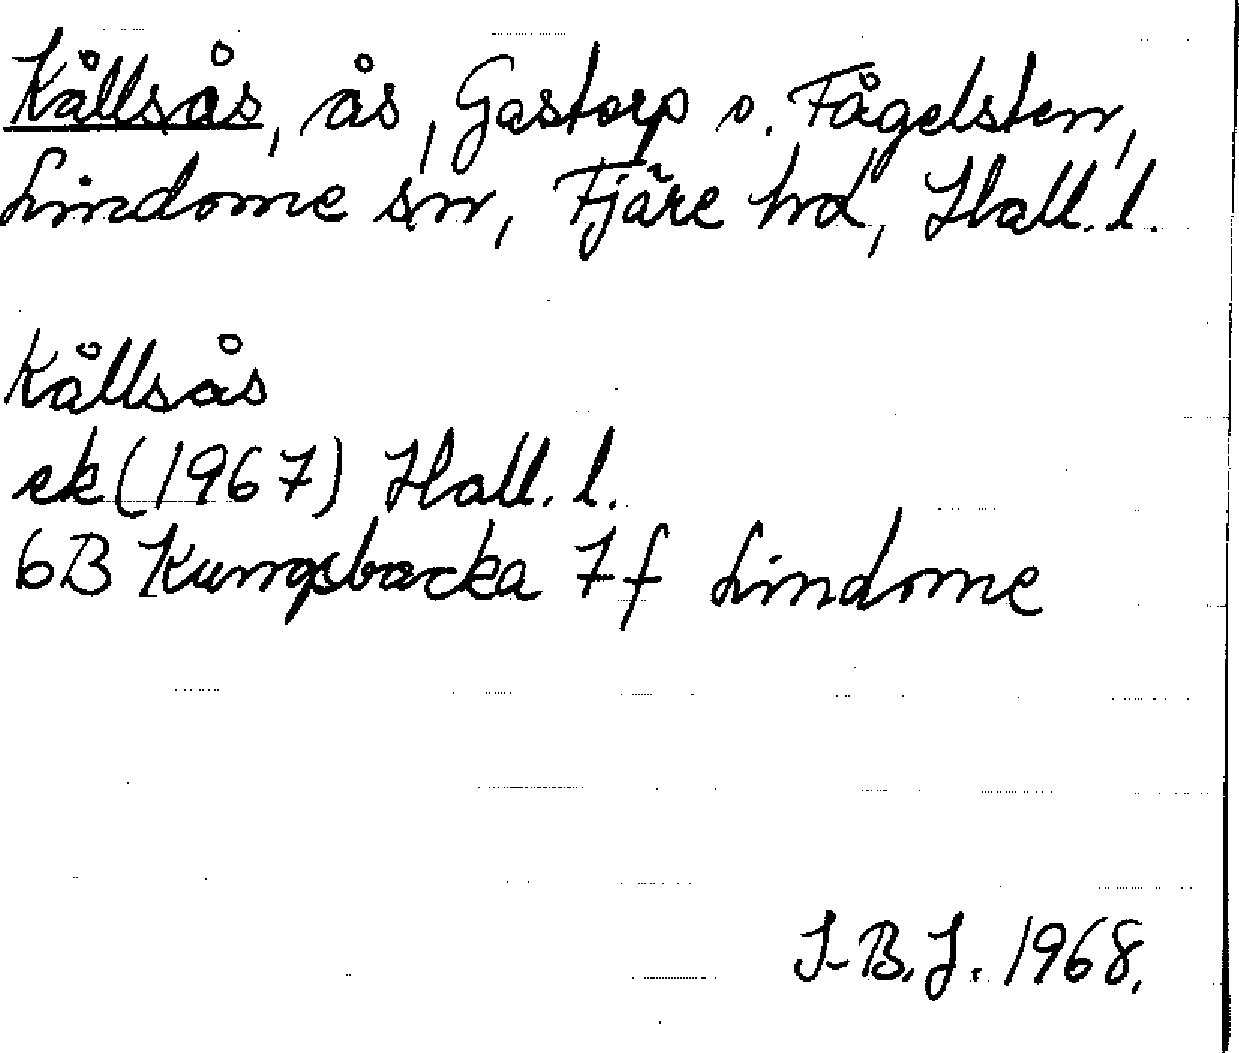 Kållsås, ås, Gastorp o. Fågelsten,
Lindome sn, Fjäre hd, Hall. l.
Kållsås
ek (1967) Hall. l.
6B Kungsbacka 7f Lindome
I-B.J. 1968.